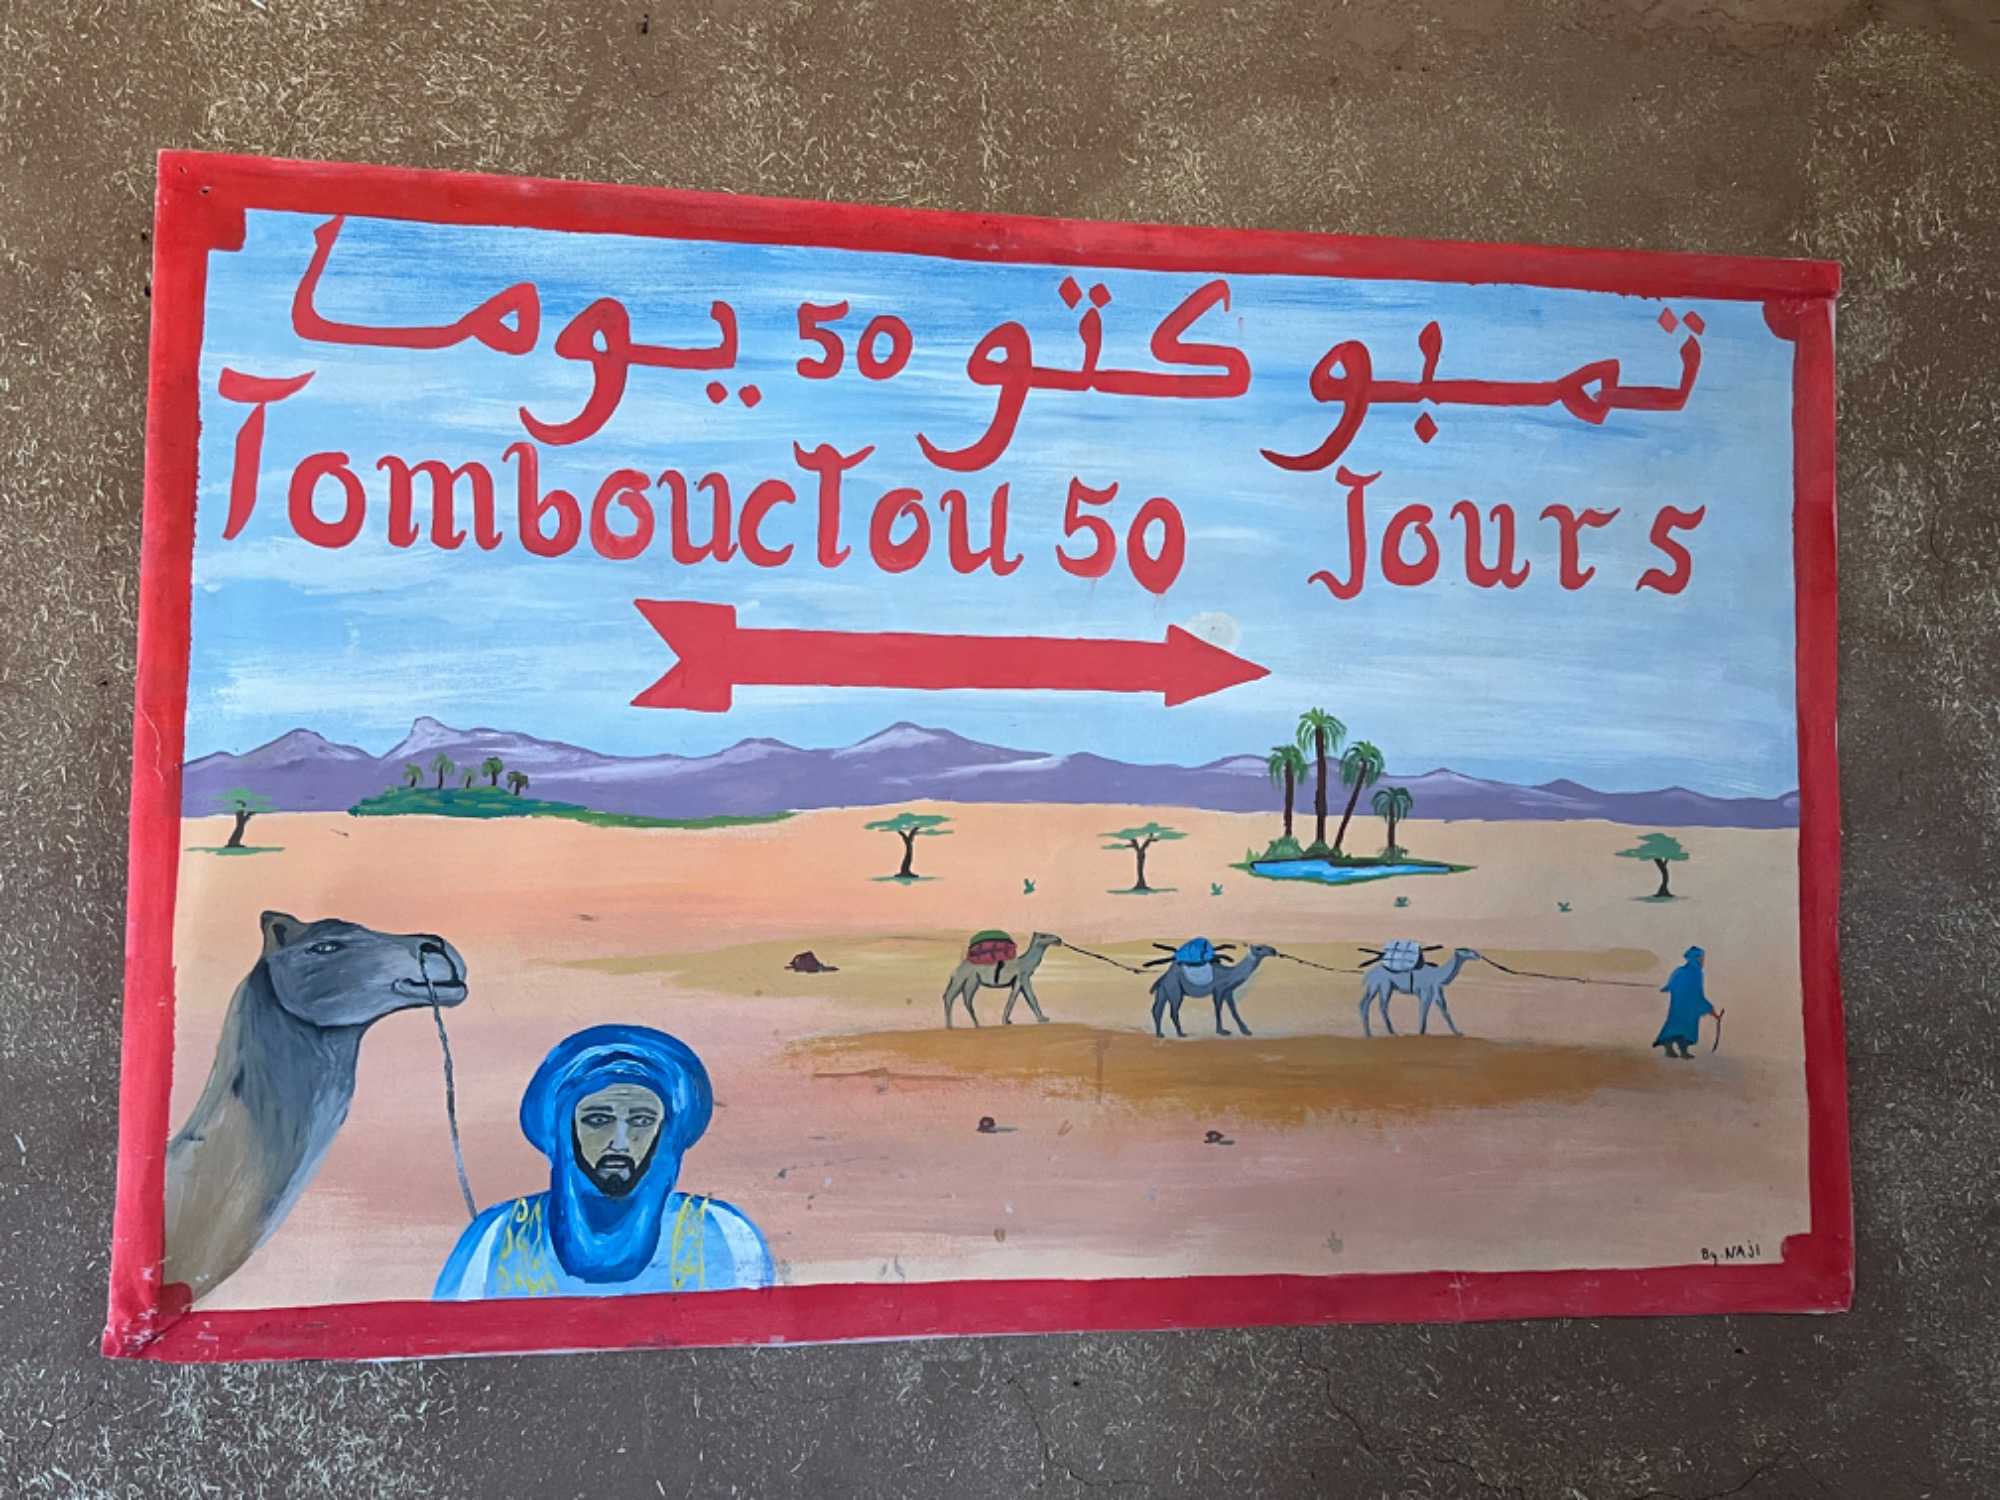 تمبوكتو 50 يوما
Tombouctou 50 Jours
By. NAJI